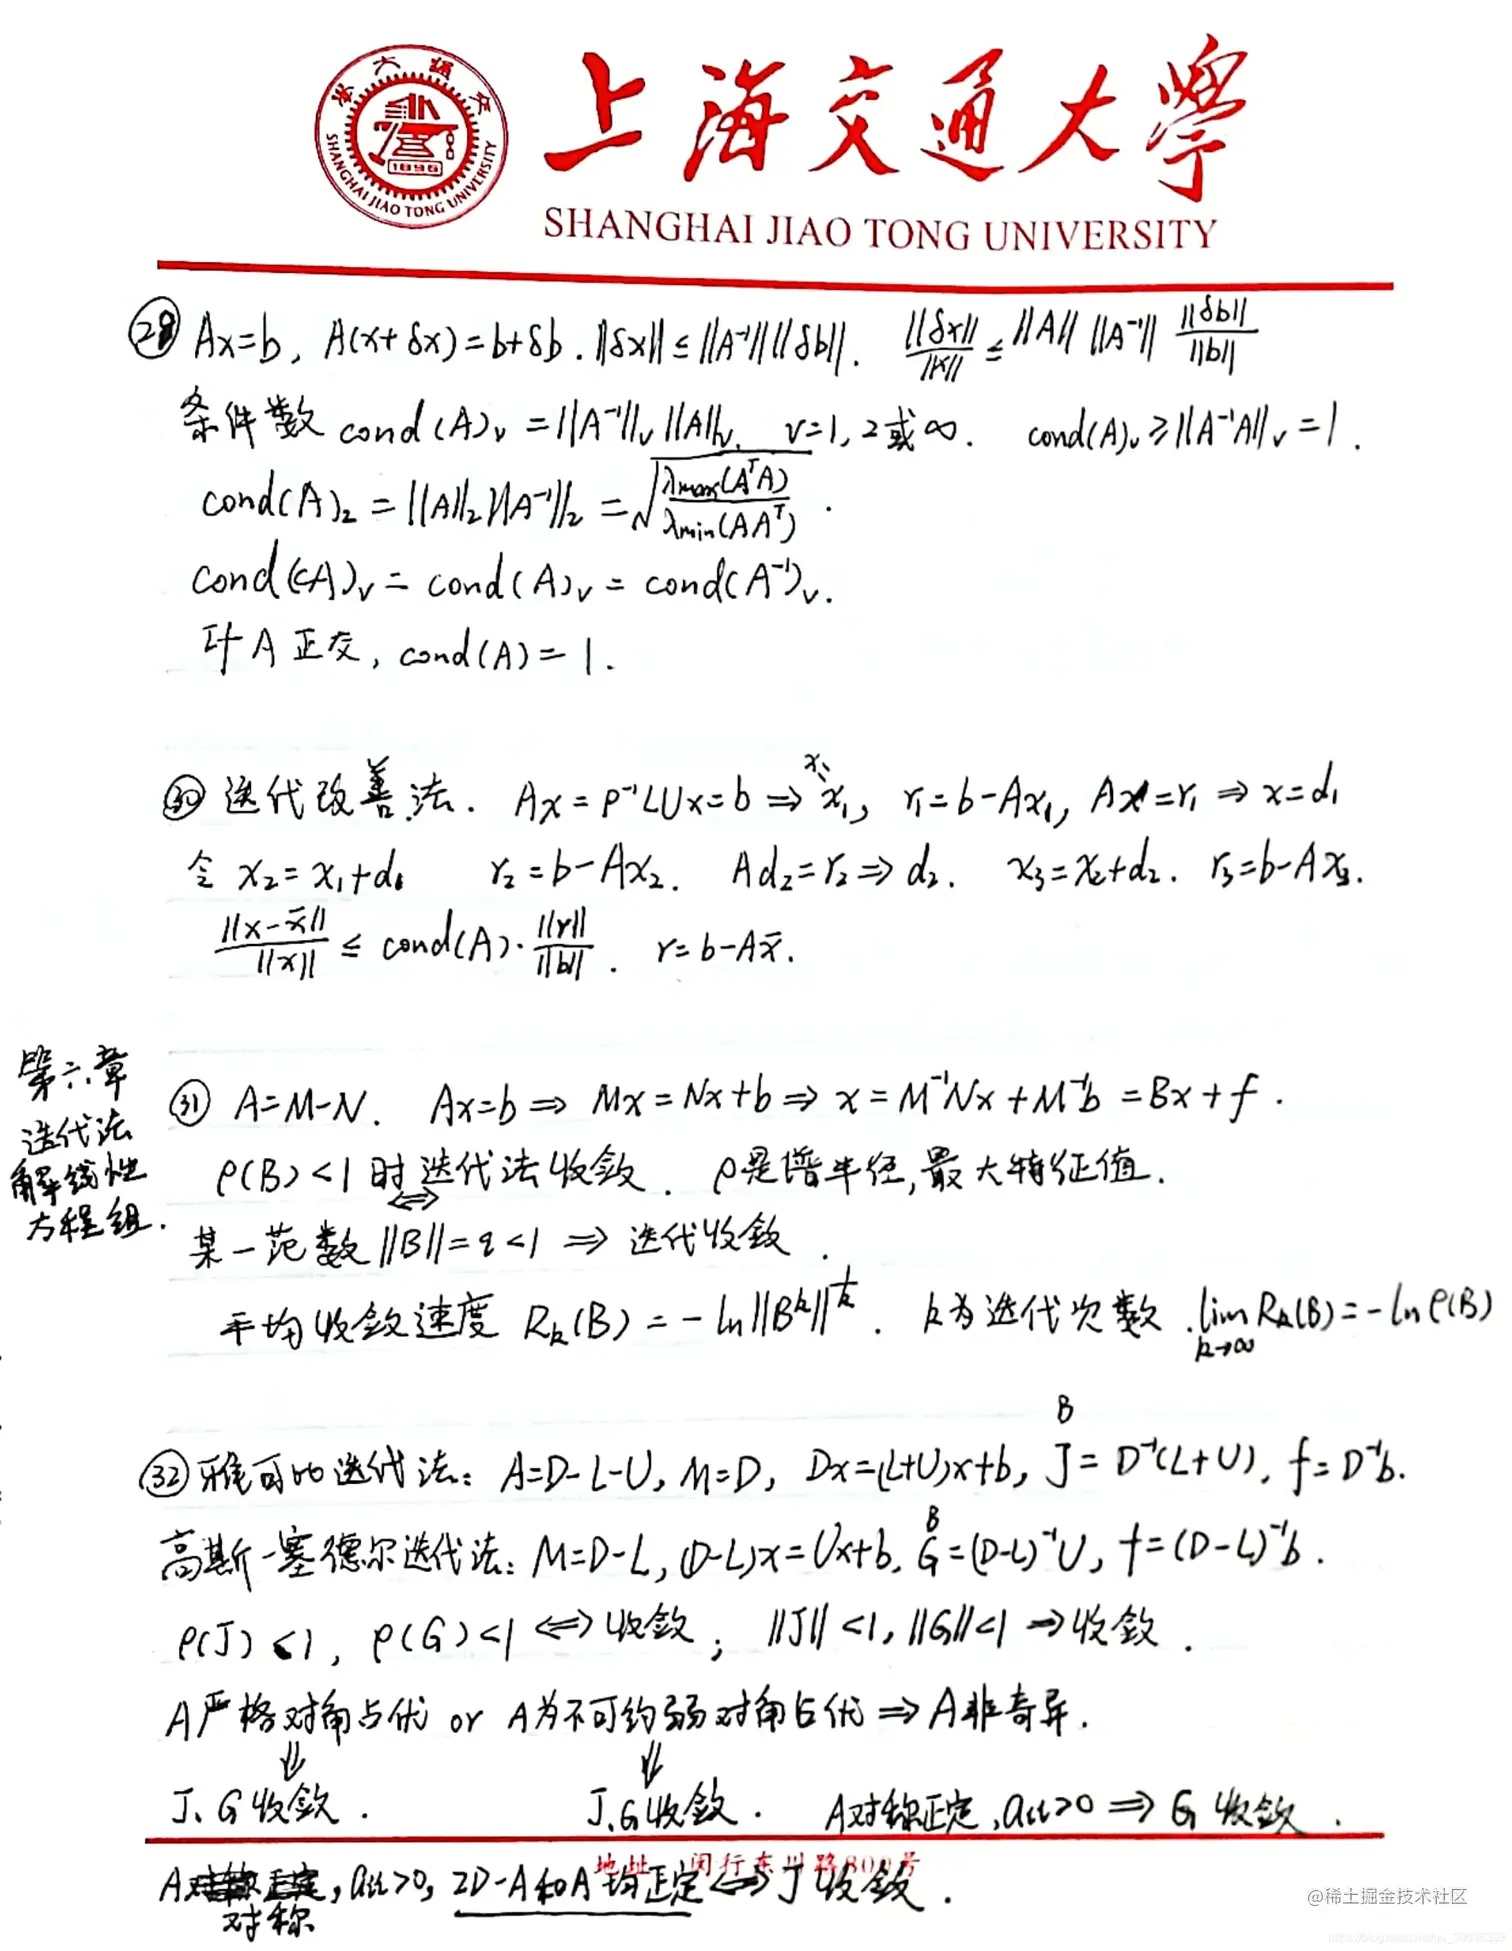 上海交通大學
SHANGHAI JIAO TONG UNIVERSITY
1896
SHANGHAI JIAO TONG UNIVERSITY
㉘ Ax=b, A(x+δx)=b+δb. ||δx||≤||A⁻¹|| ||δb||. ||δx||/||x|| ≤ ||A|| ||A⁻¹|| ||δb||/||b||
条件数 cond(A)ᵥ = ||A⁻¹||ᵥ ||A||ᵥ. v=1, 2或∞. cond(A)ᵥ ≥ ||A⁻¹A||ᵥ = 1.
cond(A)₂ = ||A||₂ ||A⁻¹||₂ = √(λmax(AᵀA)/λmin(AAᵀ)).
cond(cA)ᵥ = cond(A)ᵥ = cond(A⁻¹)ᵥ.
A正交, cond(A) = 1.
㉚ 迭代改善法. Ax = P⁻¹LUx = b ⇒ x₁, r₁=b-Ax₁, Ax=r₁ ⇒ x=d₁
令 x₂ = x₁+d₁ r₂ = b-Ax₂. Ad₂=r₂ ⇒ d₂. x₃=x₂+d₂. r₃=b-Ax₃.
||x-x̄||/||x|| ≤ cond(A)·||r||/||b||. r = b-Ax̄.
第六章
迭代法
解线性
方程组.
㉛ A=M-N. Ax=b ⇒ Mx=Nx+b ⇒ x = M⁻¹Nx + M⁻¹b = Bx + f.
ρ(B)<1时迭代法收敛. ρ是谱半径,最大特征值.
⇔
某一范数||B||=q<1 ⇒ 迭代收敛.
平均收敛速度 Rₖ(B) = -ln||Bᵏ||^(1/k). k为迭代次数. lim k→∞ Rₖ(B) = -lnρ(B)
B
㉜ 雅可比迭代法: A=D-L-U, M=D, Dx=(L+U)x+b, J = D⁻¹(L+U), f = D⁻¹b.
B
高斯-塞德尔迭代法: M=D-L, (D-L)x=Ux+b, G=(D-L)⁻¹U, f=(D-L)⁻¹b.
ρ(J)<1, ρ(G)<1 ⇔ 收敛; ||J||<1, ||G||<1 ⇒ 收敛.
A严格对角占优 or A为不可约弱对角占优 ⇒ A非奇异.
⇓ ⇓
J、G收敛. J、G收敛. A对称正定, aᵢᵢ>0 ⇒ G收敛.
地址 闵行东川路800号
A对称, aᵢᵢ>0, 2D-A和A均正定 ⇔ J收敛.
@稀土掘金技术社区